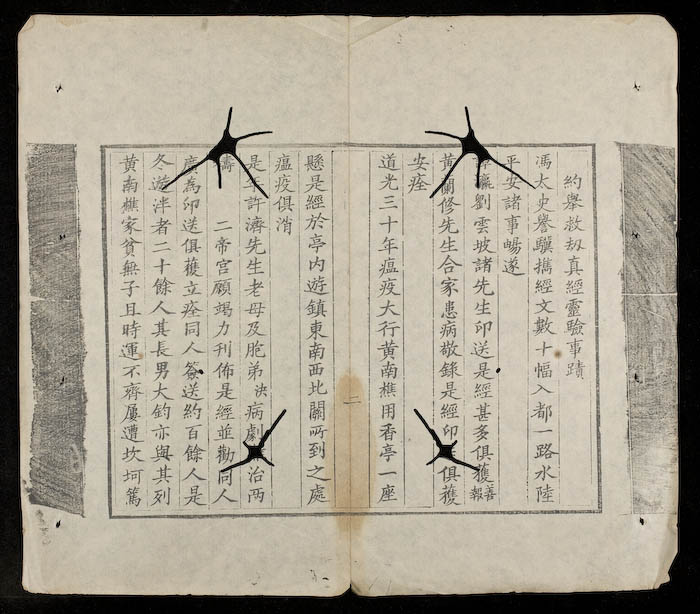 約舉救刼真經靈驗事蹟
馮太史譽驥攜經文數十幅入都一路水陸
平安諸事暢遂
瀛劉雲坡諸先生印送是經甚多俱獲善報
黃蘭修先生合家患病敬錄是經印俱獲
安痊
道光三十年瘟疫大行黃南樵用香亭一座
二
懸是經於亭內遊鎮東南西北關所到之處
瘟疫俱消
是年許濟先生老母及胞弟決病劇治两
二帝宮願竭力刊佈是經並勸同人
廣為印送俱獲立痊同人簽送約百餘人是
冬遊泮者二十餘人其長男大鈞亦與其列
黃南樵家貧無子且時運不齊屢遭坎坷篤